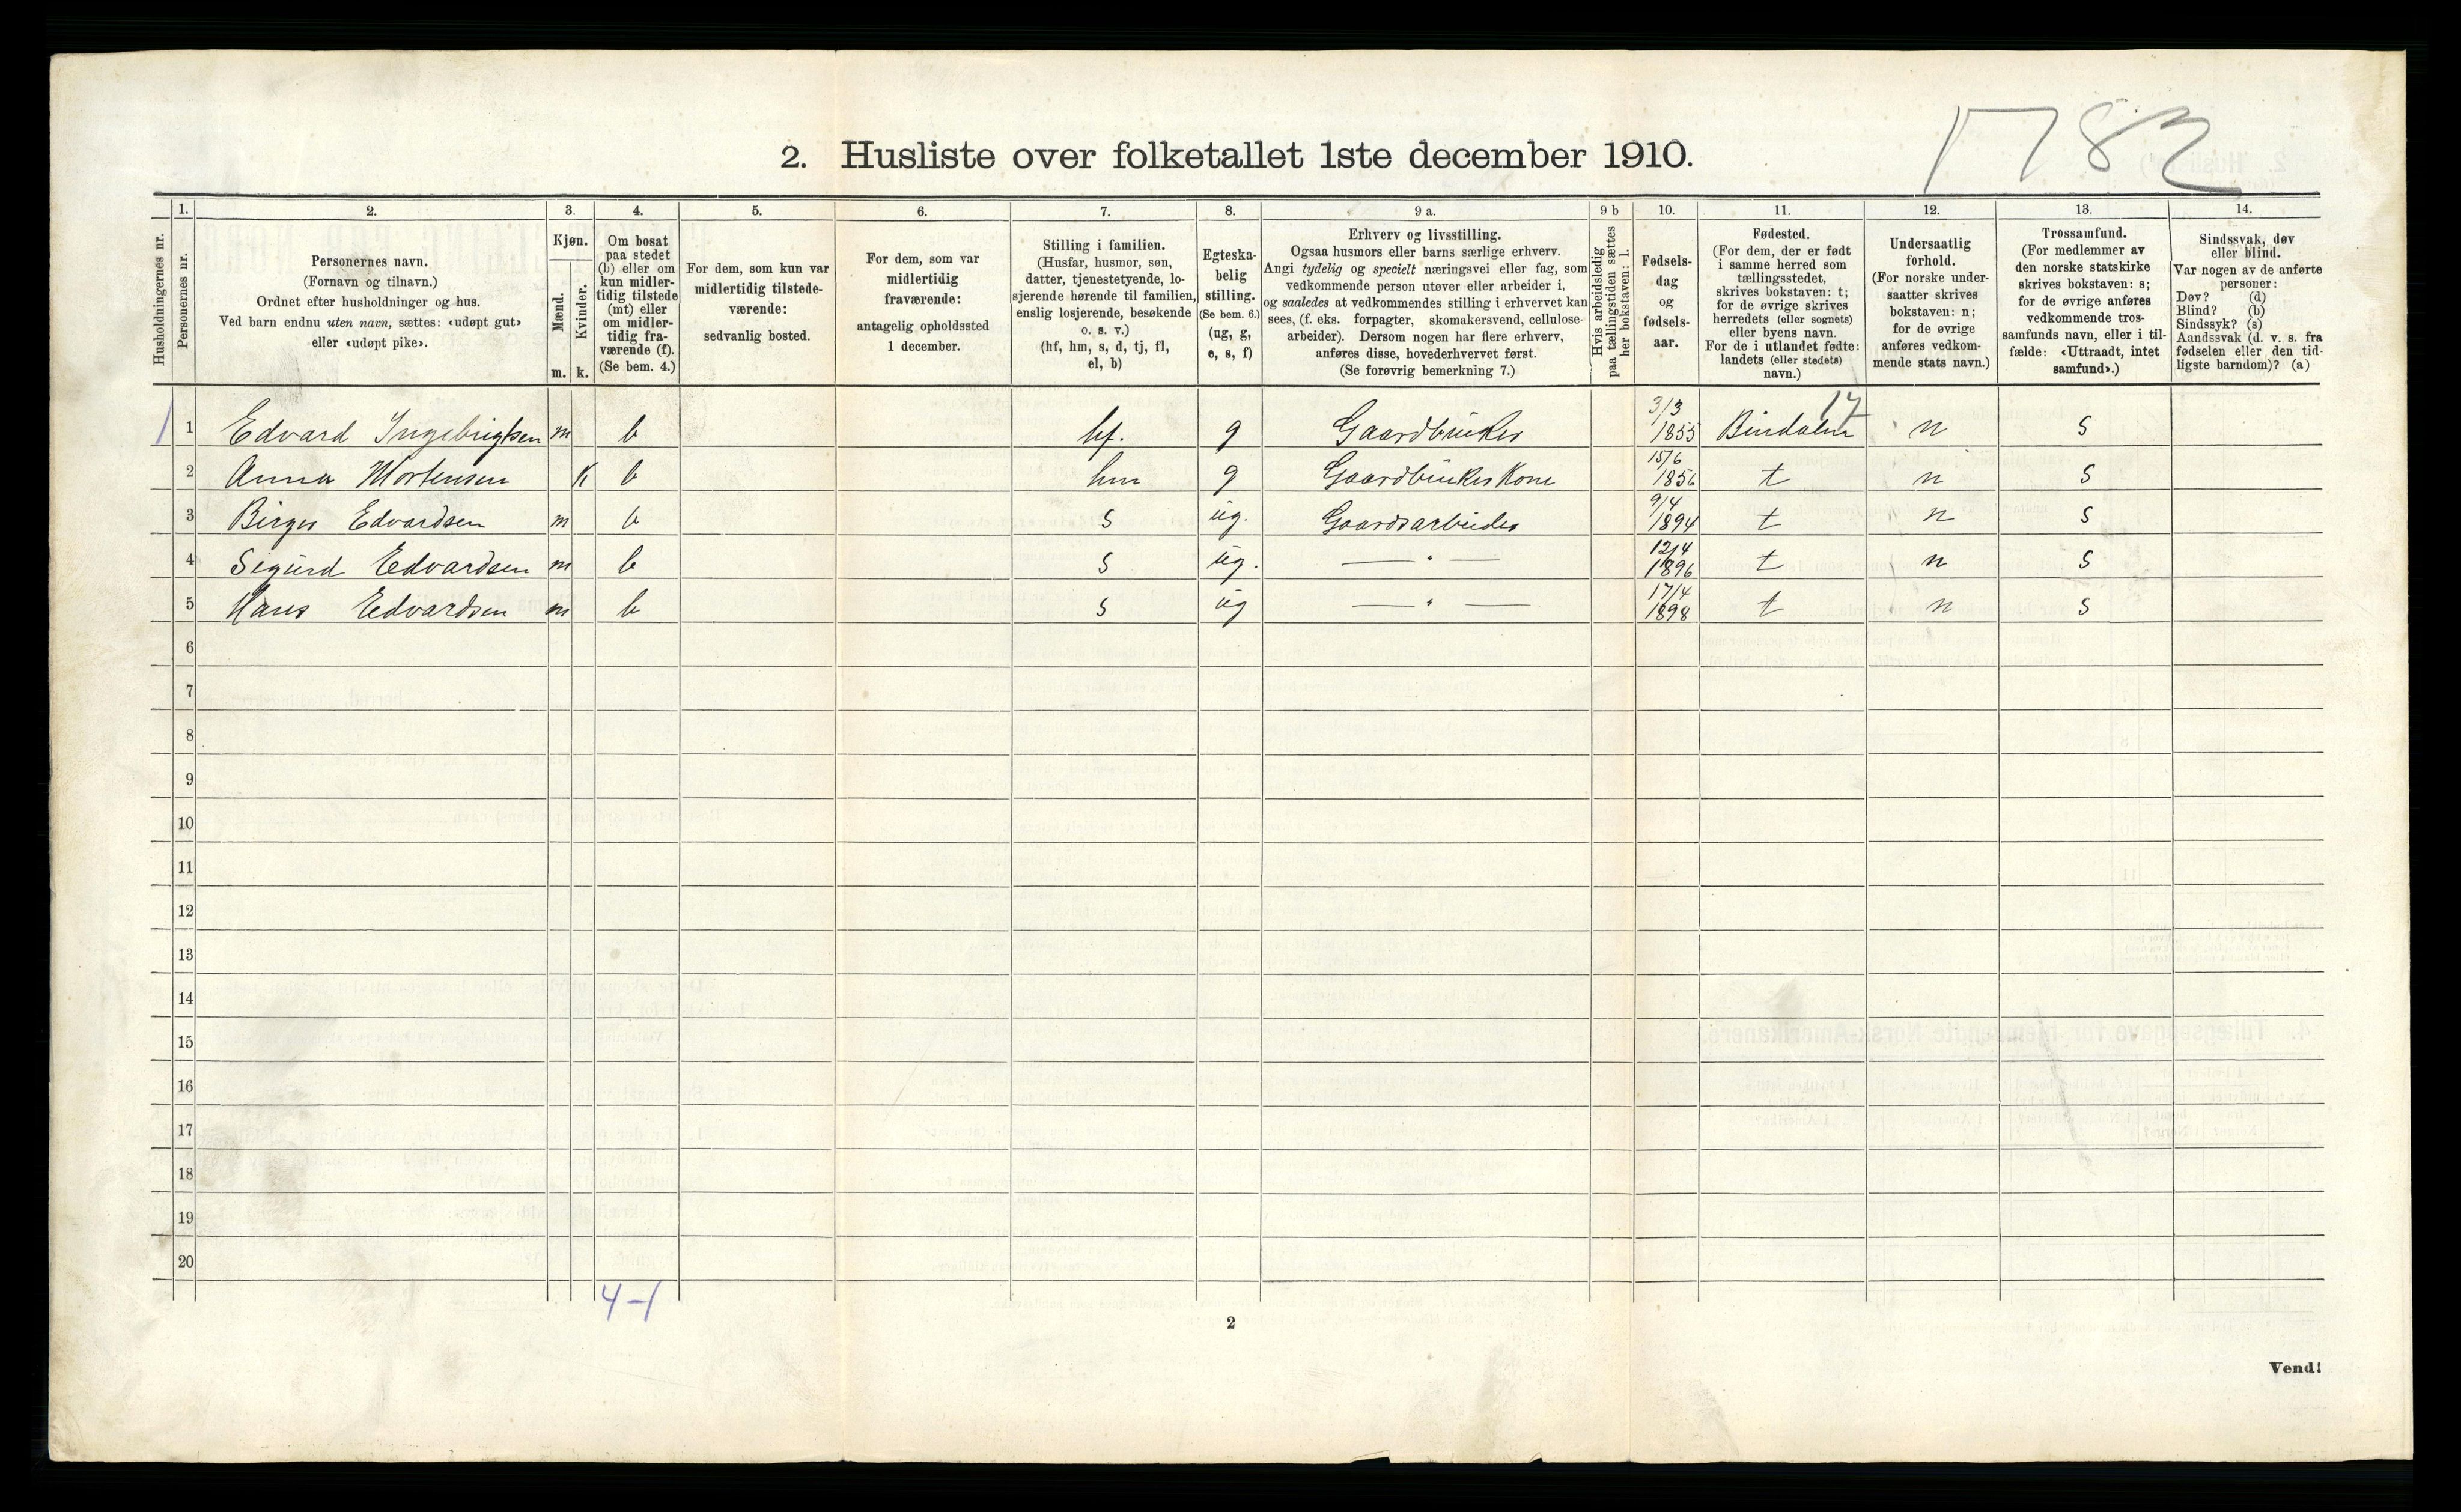 1782
2. Husliste over folketallet 1ste december 1910.
Husholdningernes nr.
1.
Personernes nr.
2.
Personernes navn.
(Fornavn og tilnavn.)
Ordnet efter husholdninger og hus.
Ved barn endnu uten navn, sættes: «udøpt gut»
eller «udøpt pike».
3.
Kjøn.
Mænd.
Kvinder.
m. k.
4.
Om bosat
paa stedet
(b) eller om
kun midler-
tidig tilstede
(mt) eller
om midler-
tidig fra-
værende (f).
(Se bem. 4.)
5.
For dem, som kun var
midlertidig tilstede-
værende:
sedvanlig bosted.
6.
For dem, som var
midlertidig
fraværende:
antagelig opholdssted
1 december.
7.
Stilling i familien.
(Husfar, husmor, søn,
datter, tjenestetyende, lo-
sjerende hørende til familien,
enslig losjerende, besøkende
o. s. v.)
(hf, hm, s, d, tj, fl,
el, b)
8.
Egteska-
belig
stilling.
(Se bem. 6.)
(ug, g,
e, s, f)
9 a.
Erhverv og livsstilling.
Ogsaa husmors eller barns særlige erhverv.
Angi tydelig og specielt næringsvei eller fag, som
vedkommende person utøver eller arbeider i,
og saaledes at vedkommendes stilling i erhvervet kan
sees, (f. eks. forpagter, skomakersvend, cellulose-
arbeider). Dersom nogen har flere erhverv,
anføres disse, hovederhvervet først.
(Se forøvrig bemerkning 7.)
9 b
Hvis arbeidsledig
paa tællingstiden sættes
her bokstaven: l.
10.
Fødsels-
dag
og
fødsels-
aar.
11.
Fødested.
(For dem, der er født
i samme herred som
tællingsstedet,
skrives bokstaven: t;
for de øvrige skrives
herredets (eller sognets)
eller byens navn.
For de i utlandet fødte:
landets (eller stedets)
navn.)
12.
Undersaatlig
forhold.
(For norske under-
saatter skrives
bokstaven: n;
for de øvrige
anføres vedkom-
mende stats navn.)
13.
Trossamfund.
(For medlemmer av
den norske statskirke
skrives bokstaven: s;
for de øvrige anføres
vedkommende tros-
samfunds navn, eller i til-
fælde: «Uttraadt, intet
samfund».)
14.
Sindssvak, døv
eller blind.
Var nogen av de anførte
personer:
Døv? (d)
Blind? (b)
Sindssyk? (s)
Aandssvak (d. v. s. fra
fødselen eller den tid-
ligste barndom)? (a)
1 1 Edvard Ingebrigtsen m b hf. g Gaardbruker 3/3 1855 Bindalen 17 n s
2 Anna Mortensen K b hm g Gaardbrukerskone 15/6 1856 t n s
3 Birger Edvardsen m b s ug. Gaardsarbeider 9/4 1894 t n s
4 Sigurd Edvardsen m b s ug. — " — 12/4 1896 t n s
5 Hans Edvardsen m b s ug — " — 17/4 1898 t n s
6
7
8
9
10
11
12
13
14
15
16
17
18
19
20
4-1
2
Vend!